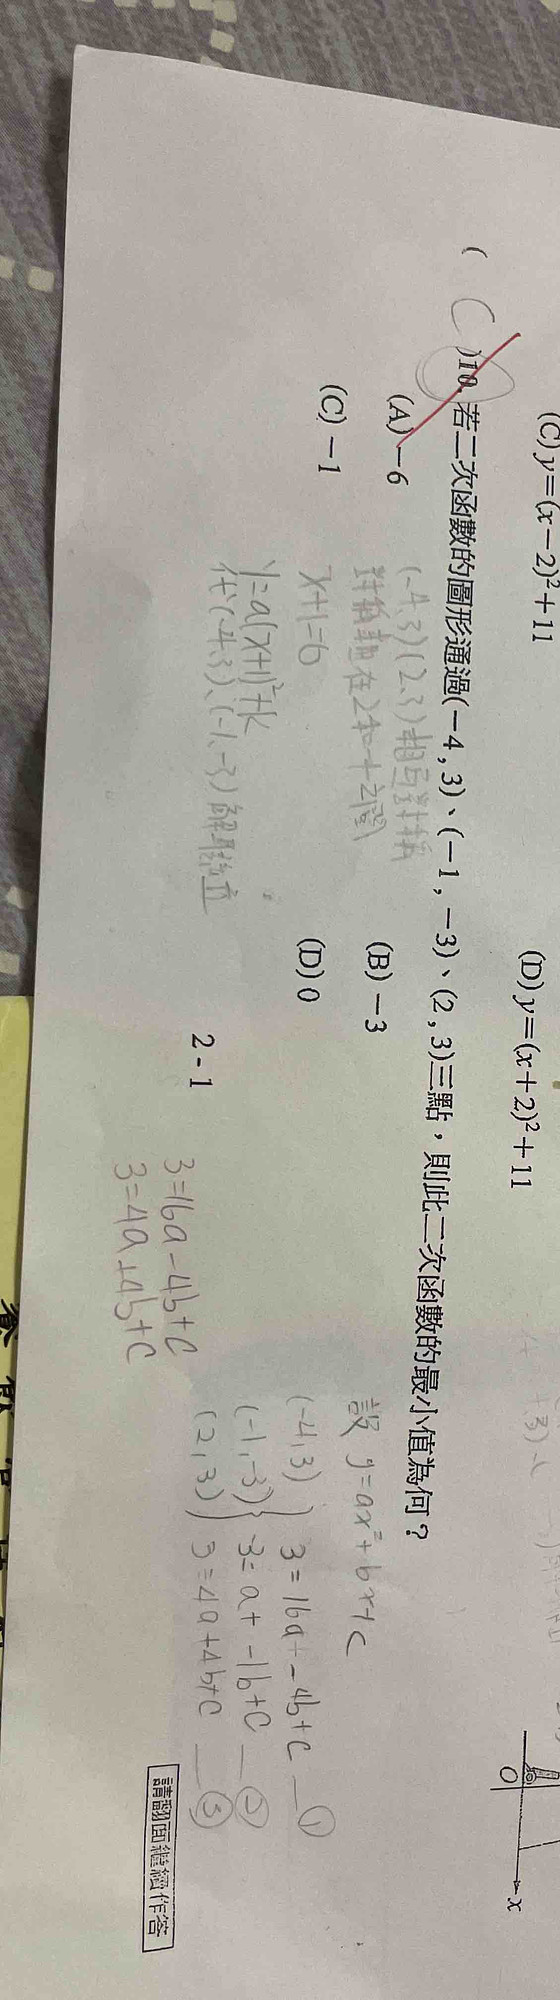 (C) y=(x−2)²+11
(D) y=(x+2)²+11
( C )10. 若二次函數的圖形通過(−4 , 3)、(−1 , −3)、(2 , 3)三點，則此二次函數的最小值為何？
(A) −6
(B) −3
(C) −1
(D) 0
(-4,3)(2,3)相互對稱
對稱軸在2和-4之間
x+1=0
y=a(x+1)²+k
代(-4,3)、(-1,-3)解聯立
設 y=ax²+bx+c
(-4,3)
(-1,-3)
(2,3)
3=16a+-4b+c —①
-3=a+-1b+c —②
3=4a+4b+c —③
3=16a-4b+c
3=4a+4b+c
2 - 1
請翻面繼續作答
O
x